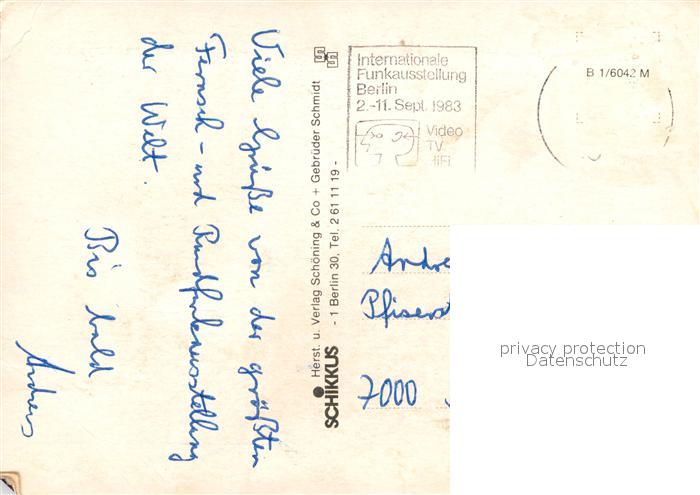 Viele Grüße von der größten
Fernseh- und Rundfunkausstellung
der Welt.
Bis bald
Andreas
SCHIKKUS
Herst. u. Verlag Schöning & Co + Gebrüder Schmidt
- 1 Berlin 30, Tel. 2 61 11 19 -
Internationale
Funkausstellung
Berlin
2.-11. Sept. 1983
Video
TV
HiFi
B 1/6042 M
Andre
Pfiserst
7000
privacy protection
Datenschutz